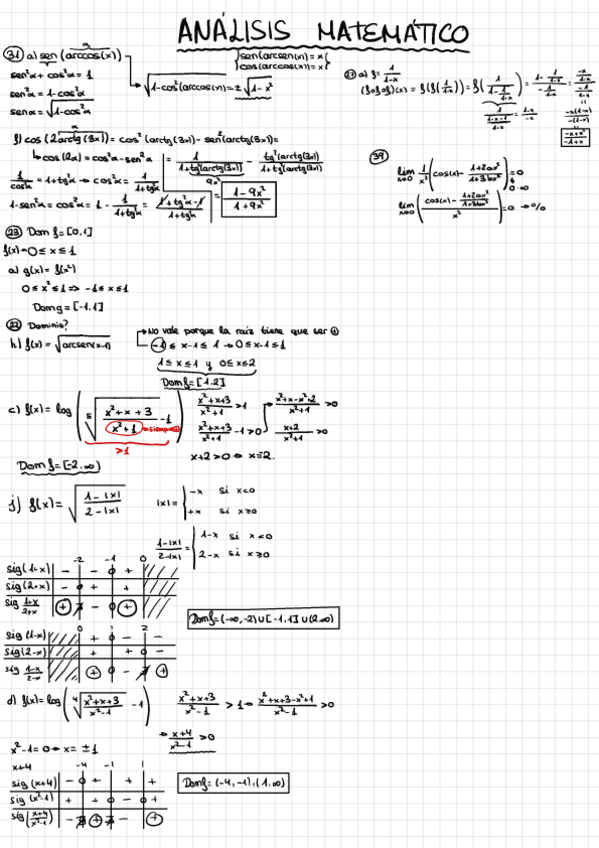 ANÁLISIS MATEMÁTICO
31 a) sen (arccos(x))
α
{sen(arcsen(x)) = x
cos(arccos(x)) = x}
sen²α + cos²α = 1
√1-cos²(arccos(x)) = ± √1-x²
sen²α = 1-cos²α
senα = √1-cos²α
f) cos (2arctg(3x)) = cos²(arctg(3x)) - sen²(arctg(3x)) =
cos(2α) = cos²α - sen²α
= 1/(1+tg²(arctg(3x))) - tg²(arctg(3x))/(1+tg²(arctg(3x)))
9x²
1/cos²α = 1+tg²α → cos²α = 1/(1+tg²α)
1-sen²α = cos²α = 1 - 1/(1+tg²α) = (1+tg²α-1)/(1+tg²α)
= (1-9x²)/(1+9x²)
21 a) f = 1/(1-x)
39
lim x→0 1/x² (cos(x) - (1+2ax²)/(1+3bx²)) = 0
lim x→0 ((cos(x) - (1+2ax²)/(1+3bx²))/x²) = 0 → 0/0
23 Dom f = [0,1]
f(x) → 0 ≤ x ≤ 1
a) g(x) = f(x²)
0 ≤ x² ≤ 1 => -1 ≤ x ≤ 1
Dom g = [-1,1]
22 Dominio?
No vale porque la raíz tiene que ser +
h) f(x) = √arcsen(x-1)
-1 ≤ x-1 ≤ 1 → 0 ≤ x-1 ≤ 1
1 ≤ x ≤ 1 y 0 ≤ x ≤ 2
Dom f = [1,2]
c) f(x) = log (⁵√(x²+x+3)/(x²+1) - 1)
siempre +
>1
(x²+x+3)/(x²+1) > 1
(x²+x+3)/(x²+1) - 1 > 0
(x²+x-x²+2)/(x²+1) > 0
(x+2)/(x²+1) > 0
x+2 > 0 → x = 2.
Dom f = [-2,∞)
j) f(x) = √(1-|x|)/(2-|x|)
|x| = { -x si x<0
+x si x≥0
(1-|x|)/(2-|x|) = { 1-x si x<0
2-x si x≥0
-2 -1 0
sig(1+x) - - + 
sig(2+x) - + +
sig (1+x)/(2+x) + - +
Dom f = (-∞,-2) ∪ [-1,1] ∪ (2,∞)
0 1 2
sig(1-x) + - -
sig(2-x) + + -
sig (1-x)/(2-x) + - +
d) f(x) = log (⁴√(x²+x+3)/(x²-1) - 1)
(x²+x+3)/(x²-1) > 1 → (x²+x+3-x²+1)/(x²-1) > 0
→ (x+4)/(x²-1) > 0
x²-1 = 0 → x = ±1
x+4 -4 -1 1
sig (x+4) - + + +
sig (x²-1) + + - +
sig ((x+4)/(x²-1)) - + - +
Dom f = (-4,-1), (1,∞)